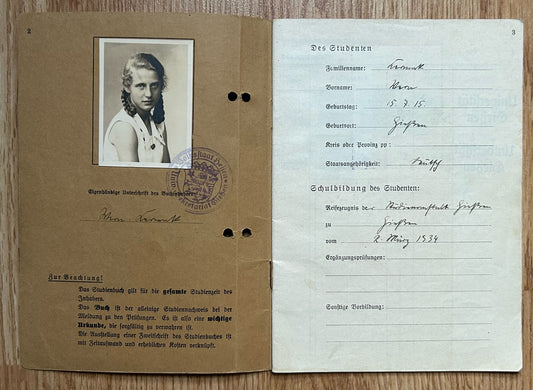 2
Eigenhändige Unterschrift des Buchinhabers:
Zur Beachtung!
Das Studienbuch gilt für die gesamte Studienzeit des
Inhabers.
Das Buch ist der alleinige Studiennachweis bei der
Meldung zu den Prüfungen. Es ist also eine wichtige
Urkunde, die sorgfältig zu verwahren ist.
Die Ausstellung einer Zweitschrift des Studienbuches ist
mit Zeitaufwand und erheblichen Kosten verknüpft.
3
Des Studenten
Familienname:
Vorname:
Geburtstag: 15.7.15.
Geburtsort: Gießen
Kreis oder Provinz pp:
Staatsangehörigkeit: deutsch
Schulbildung des Studenten:
Reifezeugnis der Studienanstalt Gießen
zu Gießen
vom 2. März 1934
Ergänzungsprüfungen:
Sonstige Vorbildung: